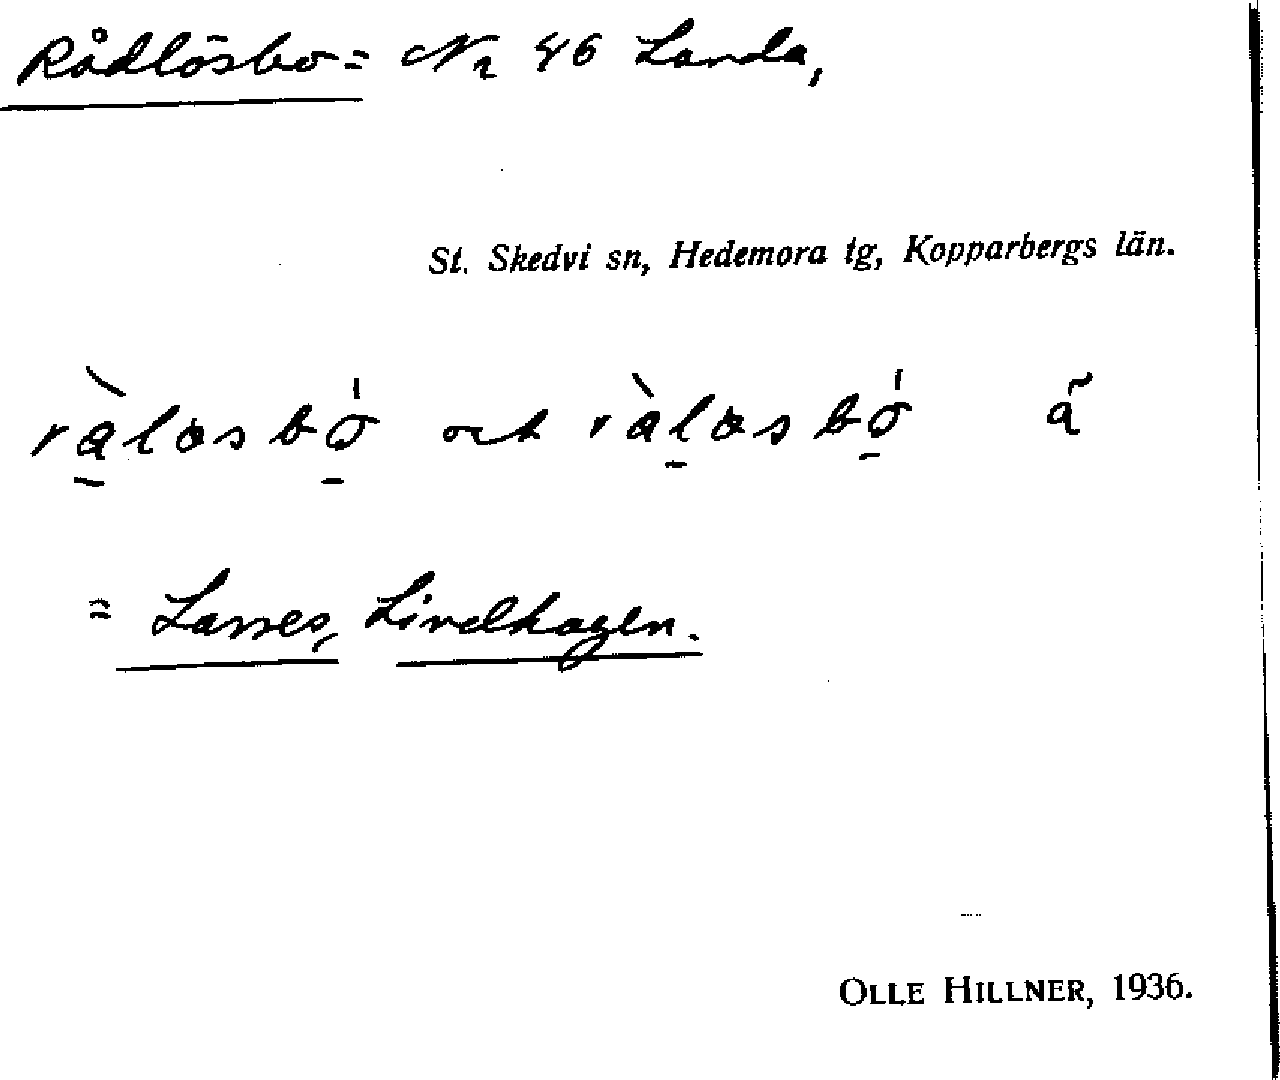 Rådlösbo = Nr 46 Landa,
St. Skedvi sn, Hedemora tg, Kopparbergs län.
och
= Lasses, Lindhagen.
OLLE HILLNER, 1936.